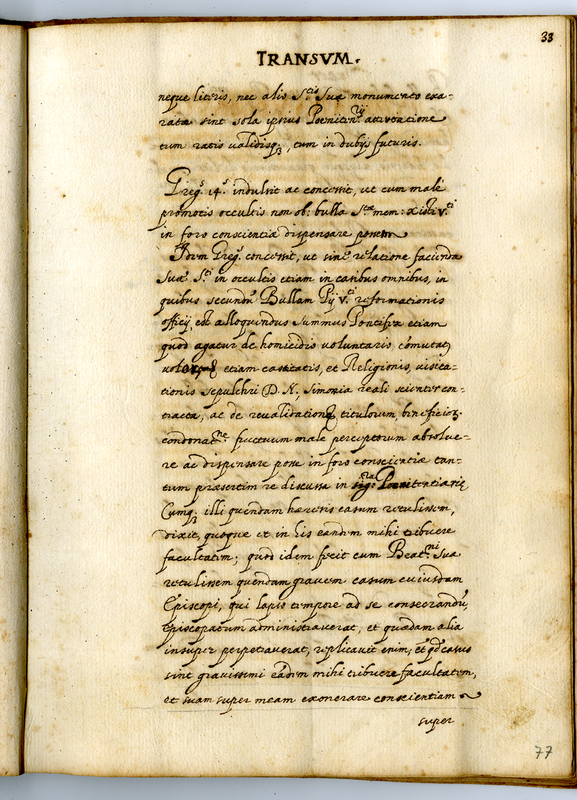 33
TRANSVM.
neque literis, nec alio S.tis Suæ monumento exa-
ratæ sint sola ipsius Poeniten.rij attestatione
tum ratis validisq3, tum in dubijs futuris.
Greg.s 14.s indulsit ac concessit, ut cum male
promotis occultis non ob: bulla S.tæ mem: Xisti V.ti
in foro conscientiæ dispensare possem
Idem Greg.s concessit, ut sine relatione facienda
Suæ S.ti in occultis etiam in casibus omnibus, in
quibus secundu Bullam Pij V.ti reformationis
officij, est alloquendus summus Pontifex etiam
quod agatur de homicidio voluntario, comutat,
etiam castitatis, et Religionis, visita-
tionis sepulchri D. N, simonia reali scienter con-
tracta, ac de revalidation titulorum, beneficior,
condonat.ne fructuum male perceptorum absolve-
re ac dispensare posse in foro conscientiæ tan-
tum præsertim re discussa in Poenitentiariæ
Cumq3 illi quendam hæresis casum retulissem,
dixit, quoque et in his eandem mihi tribuere
facultatem; quod idem fecit cum Beat.ni Suæ
retulissem quendam gravem casum cuiusdam
Episcopi, qui lapso tempore ad se consecrandu,
Episcopatum administraverat, et quædam alia
insuper perpetraverat, replicavit enim, et qd casus
sint gravissimi eadem mihi tribuere facultatem,
et suam super meam exonerare conscientiam
super
77